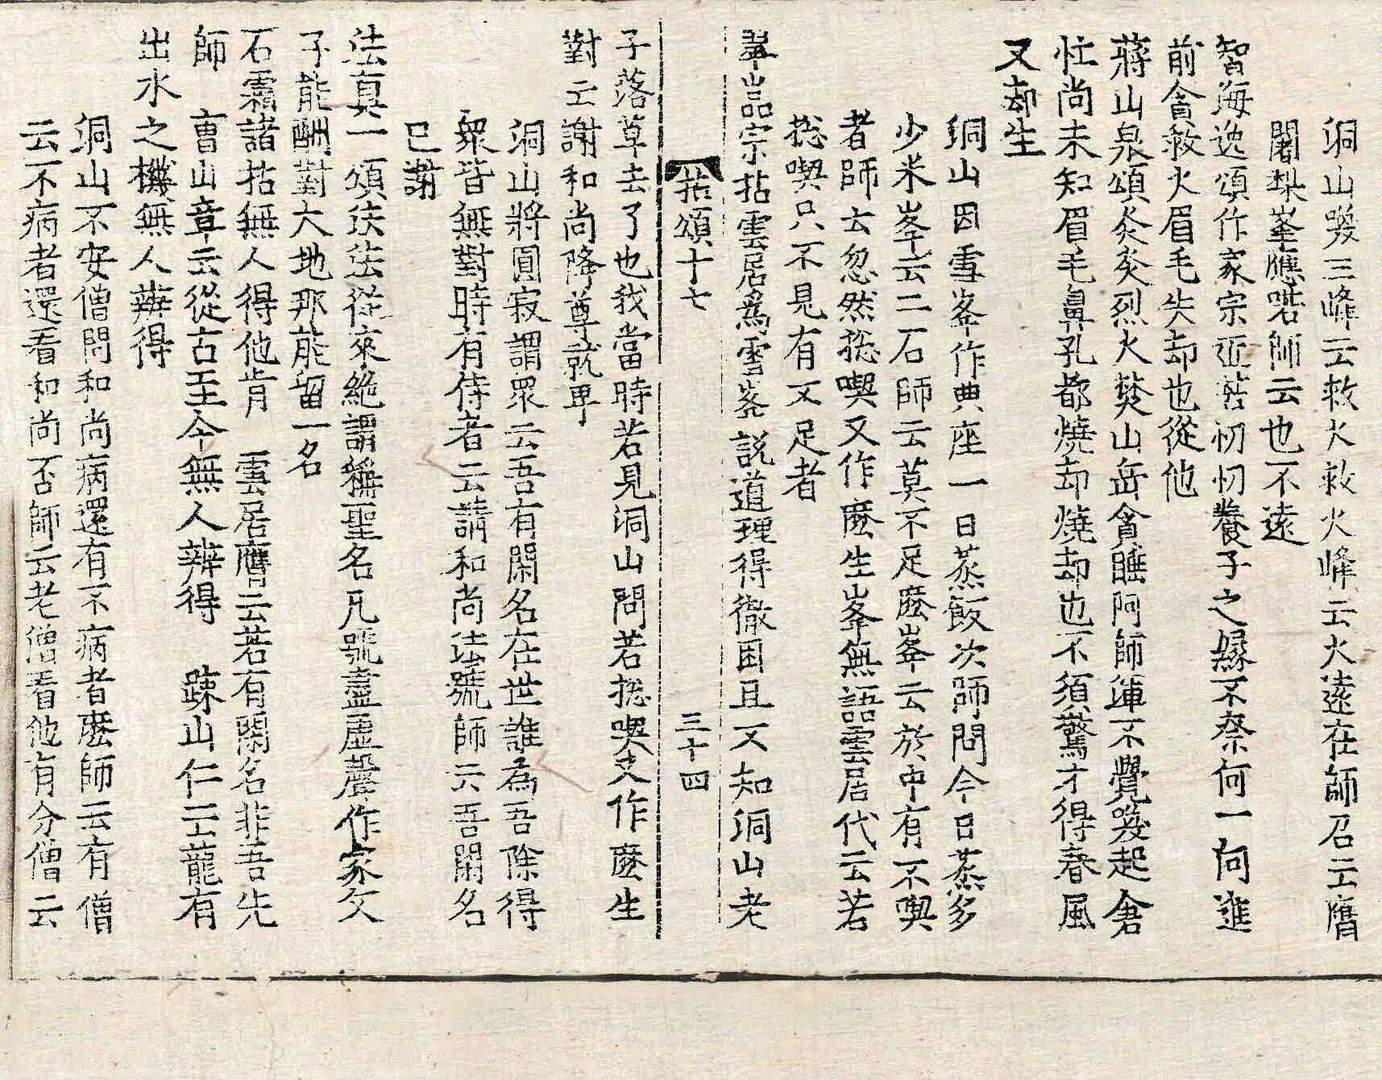 洞山喚三峰云救火救火峰云火遠在師召云膺
闍梨峯應喏師云也不遠
智海逸頌作家宗近苦忉忉養子之緣不奈何一向進
前貪救火眉毛失却也從他
蔣山泉頌炎炎烈火焚山岳貪睡阿師渾不覺喚起倉
忙尚未知眉毛鼻孔都燒却燒却也不須驚才得春風
又却生
洞山因雪峯作典座一日蒸飯次師問今日蒸多
少米峯云二石師云莫不足麽峯云於中有不喫
者師云忽然揔喫又作麽生峯無語雲居代云若
揔喫只不見有不足者
翠嵓宗拈雲居爲雪峯說道理得徹困且不知洞山老
拈頌十七 三十四
子落草去了也我當時若見洞山問若揔喫又作麽生
對云謝和尚降尊就卑
洞山將圓寂謂眾云吾有閑名在世誰為吾除得
衆皆無對時有侍者云請和尚法號師云吾閑名
已謝
法真一頌法法從來絶謂稱聖名凡號盡虛聲作家父
子能酬對大地那能留一名
石霜諸拈無人得他肯 雲居膺云若有閑名非吾先
師 曹山章云從古至今無人辨得 踈山仁云龍有
出水之機無人辨得
洞山不安僧問和尚病還有不病者麽師云有僧
云不病者還看和尚否師云老僧看他有分僧云